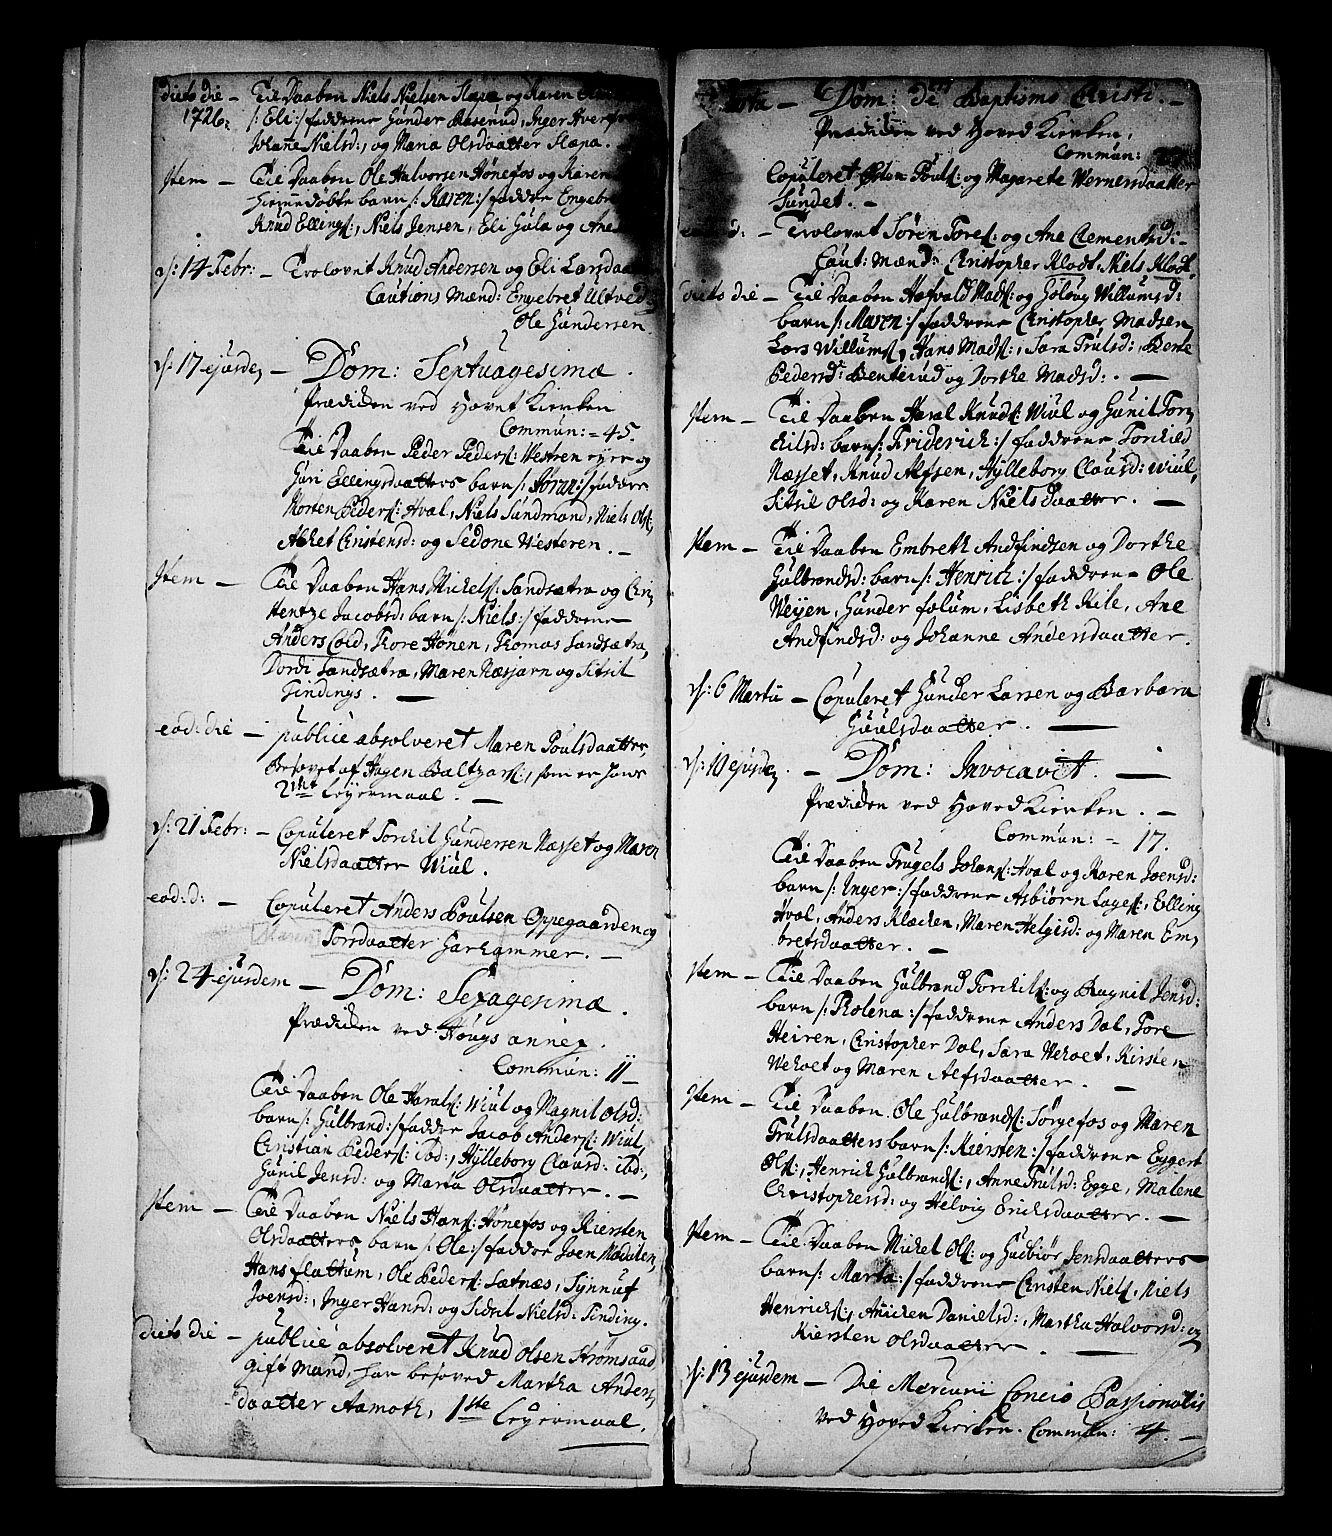 dicto die – Til Daaben Niels Nielsen Slapa og Karen
1726: /: Eli :/ faddrene Gunder Rosenud, Inger Hver
Johanne Nielsd:, og Maria Olsdaatter Slapa.
Item – Til Daaben Ole Halvorsen Hönefos og Karen
hiemedöbte barn /: Karen :/ faddre Engebre
Knud Ellings:, Niels Jensen, Eli Gula og Ane
d: 14 Febr: – Trolovet Knud Andersen og Eli Larsdaa
Cautions Mænd: Engebret Ultved
Ole Gundersen
d: 17 ejusdem – Dom: Septuagesimæ.
Prædiken ved Hovet Kierken
Commun: = 45.
Til Daaben Peder Peders: Westren eyer og
Guri Ellingsdaatters barn /: Göran :/ faddre
Morten Peders: Hval, Niels Sandmand, Niels Ols:
Aket Cristensd: og Sedone Westeren. –
Item – Til Daaben Hans Mickels: Sandsætra og Cri
Hentze Jacobsd: barn /: Niels :/ faddrene
Anders Cold, Tore Hönen, Tomas Sandsætra,
Dordi Sandsætra, Maren Næsjarn og Sitsil
Findings. –
eod: die – publice absolveret Maren Poulsdaatter,
Besovet af Hagen Baltzars:, som er hans
2det Leyermaal. –
d: 21 Febr: – Copuleret Torckil Gundersen Næsset og Maren
Nielsdaatter Wiul.
eod: d: – Copuleret Anders Poulsen Oppegaarden og
Maren Torsdaatter Garhammer. –
d: 24 ejusdem – Dom: Sexagesimæ.
Prædiken ved Hougs annex.
Commun: 11 –
Til Daaben Ole Harals: Wiul og Magnil Olsd:
barn /: Gulbrand :/ faddre Jacob Anders: Wiul,
Christian Peders: ibd:, Hylleborg Clausd: ibd:,
Gunil Jensd: og Marta Olsdaatter. –
Item – Til Daaben Niels Hans: Hönefos og Kiersten
Olsdaatters barn /: Ole :/ faddre Joen Modalen,
Hans flattum, Ole Peders: Sætnæs, Synnuf
Joensd:, Inger Hansd: og Sidsil Nielsd: Finding.
dicto die – publice absolveret Knud Olsen Strömsoed
gift Mand, har besoved Martha Anders
daatter Aamoth, 1ste Leyermaal.
Dom: de Baptismo Cristi. –
Prædiken ved Hoved Kierken.
Commun:
Copuleret Östen Pouls: og Magarete Wernersdaatter
Sundet. –
d: – Trolovet Sören Tores: og Ane Clementsd: –
Caut: Mænd: Cristopher Klodt, Niels Klodt.
dicto die – Til Daaben Hafvald Mads: og Goloug Willumsd:
barn /: Maren :/ faddrene Cristopher Madsen,
Lars Willums:, Hans Mads:, Sara Trulsd:, Bene
Pedersd: Benterud og Dorthe Madsd: . –
Item – Til Daaben Haral Knuds: Wiul og Gunil Tor
kilsd: barn /: Friderich :/ faddrene Torckild
Næsset, Knud Alfsen, Hylleborg Clausd: Wiul,
Sitsil Olsd: og Karen Nielsdaatter. –
Item – Til Daaben Embreth Andfindsen og Dorthe
Gulbrandsd: barn /: Henrich :/ faddrene Ole
Weyen, Gunder folum, Lisbeth Kile, Ane
Andfindsd: og Johanne Andersdaatter.
d: 6 Martii – Copuleret Gunder Larsen og Barbara
Guulsdaatter. –
d: 10 ejusdem – Dom: Invocavit. –
Prædiken ved Hoved Kierken. –
Commun: = 17.
Til Daaben Trugels Johans: Hval og Karen Joensd:
barn /: Inger :/ faddrene Asbiörn Lages:, Elling
Hval, Anders Klocken, Maren Helgesd: og Maren Em
bretsdaatter. –
Item – Til Daaben Gulbrand Torckils: og Ragnil Jensd:
barn /: Tolena :/ faddrene Anders Dal, Tore
Heiren, Cristopher Dal, Sara Weholt, Kirsten
Weholt og Maren Alfsdaatter. –
Item – Til Daaben Ole Gulbrands: Sörgefos og Maren
Trulsdaatters barn /: Kiersten :/ faddrene Eggert
Ols:, Henrich Gulbrands:, Anne Trulsd: Egge, Malene
Christophersd: og Helvig Ericksdaatter. –
Item – Til Daaben Mickel Ols: og Gudbiör Jensdaatters
barn /: Marta :/ faddrene Cristen Niels:, Niels
Henricks:, Anicken Danielsd:, Martha Halvorsd: og
Kiersten Olsdaatter. –
d: 13 ejusdem – Die Mercurii Concio Passionalis
ved Hoved Kierken. Commun: 4. –